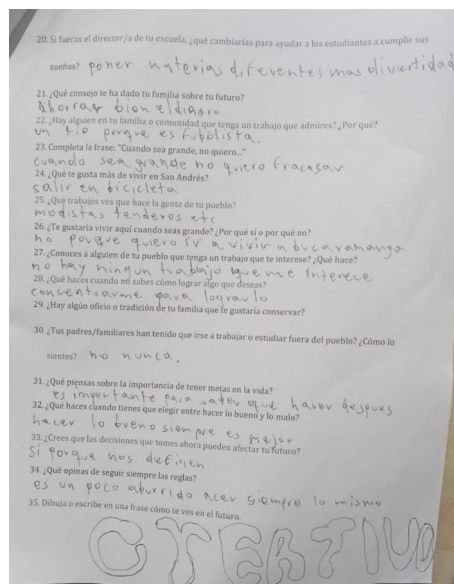 20. Si fueras el director/a de tu escuela, ¿qué cambiarías para ayudar a los estudiantes a cumplir sus
sueños? poner materias diferentes mas divertidad
21. ¿Qué consejo te ha dado tu familia sobre tu futuro?
Ahorrar bien el dinero
22. ¿Hay alguien en tu familia o comunidad que tenga un trabajo que admires? ¿Por qué?
un tio porque es futbolista.
23. Completa la frase: "Cuando sea grande, no quiero..."
cuando sea grande no quiero fracasar
24. ¿Qué te gusta más de vivir en San Andrés?
salir en bicicleta
25. ¿Qué trabajos ves que hace la gente de tu pueblo?
modistas tenderos etc
26. ¿Te gustaría vivir aquí cuando seas grande? ¿Por qué sí o por qué no?
no porque quiero ir a vivir a bucaramanga
27. ¿Conoces a alguien de tu pueblo que tenga un trabajo que te interese? ¿Qué hace?
no hay ningun trabajo que me interece
28. ¿Qué haces cuando no sabes cómo lograr algo que deseas?
concentrarme para lograrlo
29. ¿Hay algún oficio o tradición de tu familia que te gustaría conservar?
30. ¿Tus padres/familiares han tenido que irse a trabajar o estudiar fuera del pueblo? ¿Cómo lo
sientes? no nunca,
31. ¿Qué piensas sobre la importancia de tener metas en la vida?
es importante para saber que haver despues
32. ¿Qué haces cuando tienes que elegir entre hacer lo bueno y lo malo?
hacer lo bueno siempre es mejor
33. ¿Crees que las decisiones que tomes ahora pueden afectar tu futuro?
si porque nos definen
34. ¿Qué opinas de seguir siempre las reglas?
es un poco aburrido acer siempre lo mismo
35. Dibuja o escribe en una frase cómo te ves en el futuro.